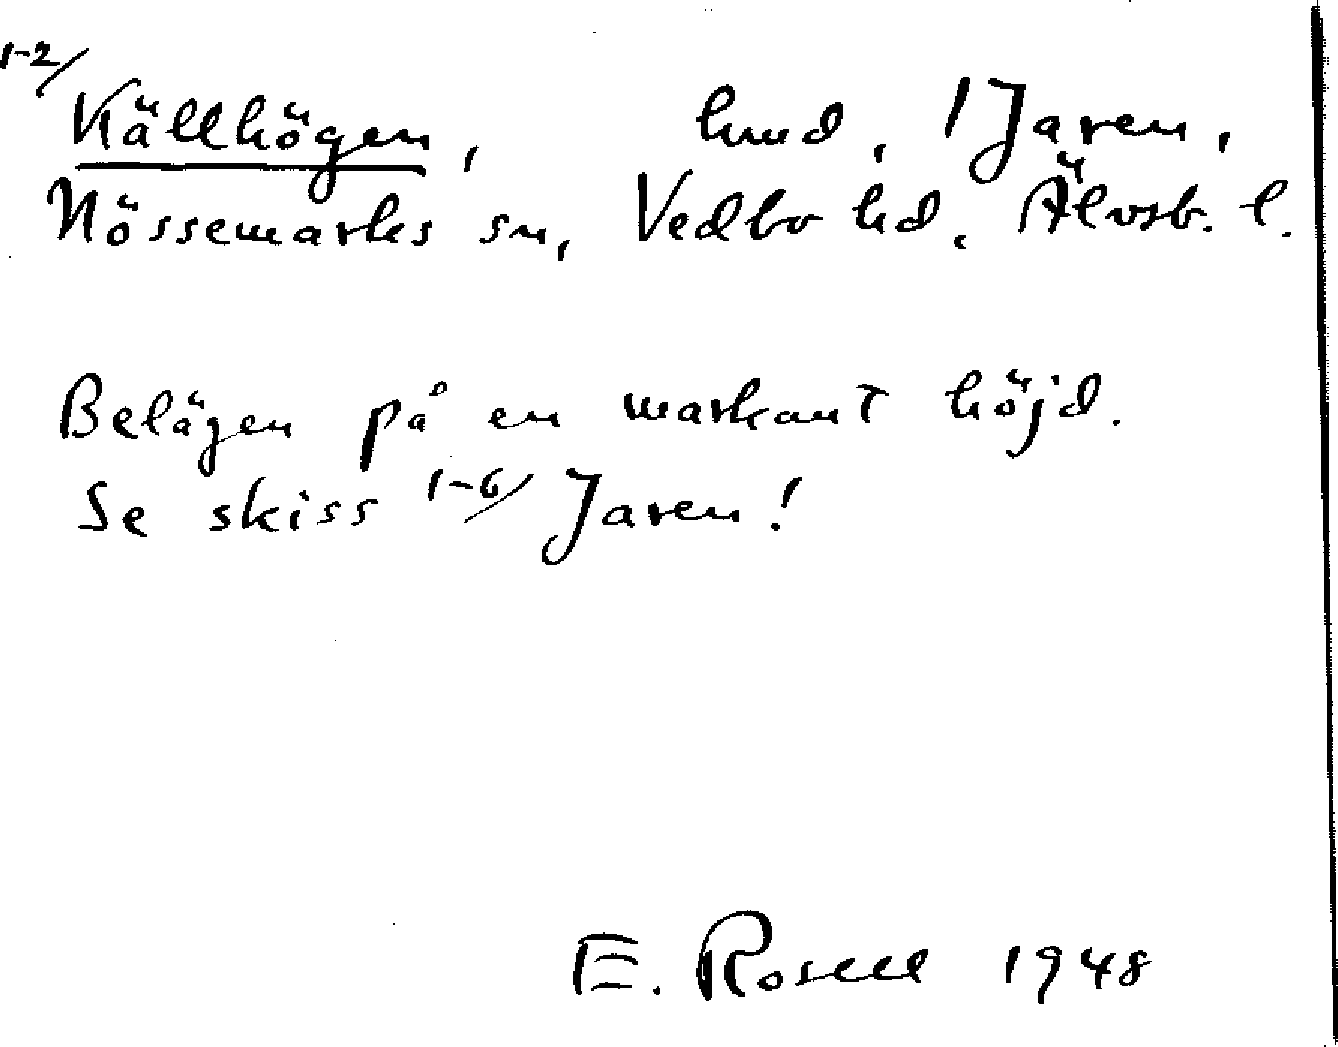 1-2/
Källhögen, hmd, 1 Jaren,
Nössemarks sn, Vedbo hd, Älvsb. l.
Belägen på en markant höjd.
Se skiss 1-6/ Jaren!
E. Rosell 1948